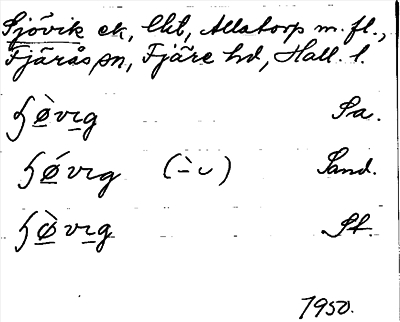 Sjövik ek, lht, Allatorp m. fl.,
Fjärås sn, Fjäre hd, Hall. l.
ɧø̀vıg Sa.
ɧǿvıg (–̀ ᴗ) Sand.
ɧø̀vıg St.
1950.